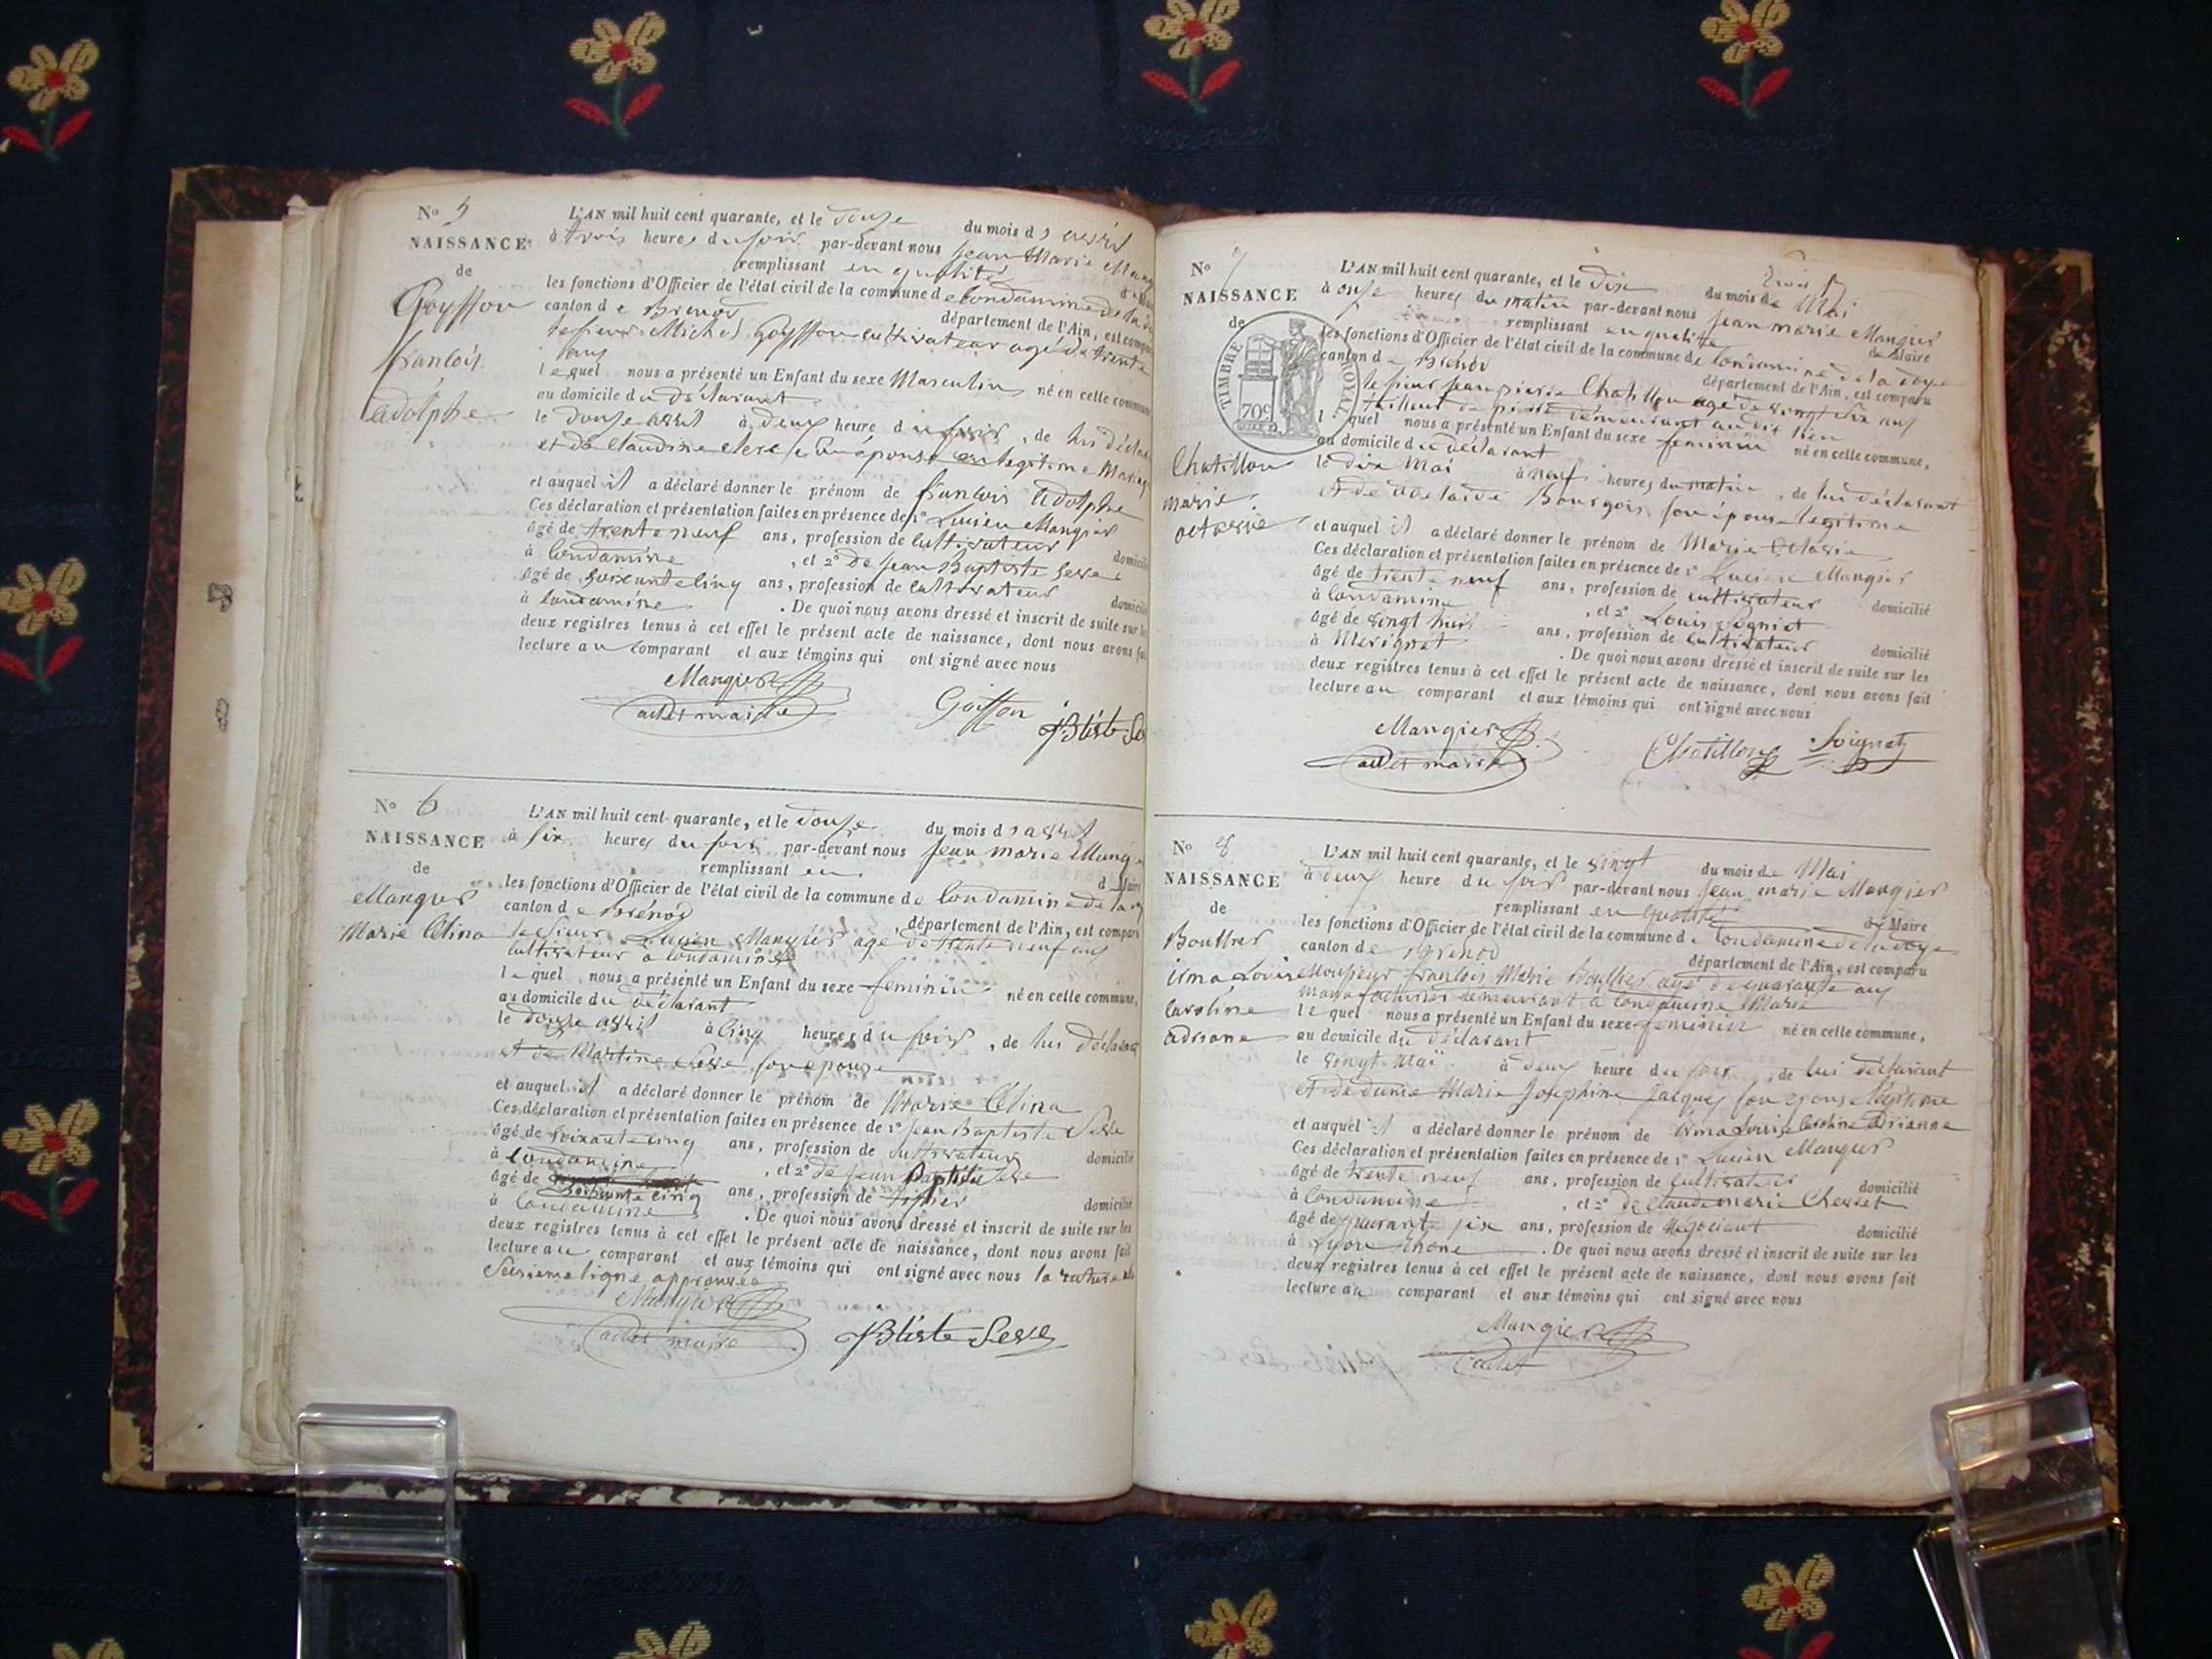 No 5
NAISSANCE
de
Goyffon
françois
adolphe
L'AN mil huit cent quarante, et le douse du mois d'avril
à trois heures du soir par-devant nous jean Marie Mang
remplissant en qualité d Maire
les fonctions d'Officier de l'état civil de la commune de Condamine de la do
canton de Brenod département de l'Ain, est comparu
le sieur Michel Goyffon cultivateur agé de trente
ans
lequel nous a présenté un Enfant du sexe Masculin né en cette commune
au domicile du déclarant
le douse avril à deux heure du soir, de lui décla
et de Claudine son épouse en legitime Mariag
et auquel il a déclaré donner le prénom de françois adolphe
Ces déclaration et présentation faites en présence de 1° Lucien Mangier
âgé de trente neuf ans, profession de cultivateur domicilié
à Condamine, et 2° De jean Baptiste Serre
âgé de soixante cinq ans, profession de cultivateur domicilié
à Condamine. De quoi nous avons dressé et inscrit de suite sur les
deux registres tenus à cet effet le présent acte de naissance, dont nous avons fait
lecture au comparant et aux témoins qui ont signé avec nous
Mangier
Goiffon
adet maire
JBtiste Se
No 6
NAISSANCE
de
Mangier
Marie Célina
L'AN mil huit cent quarante, et le douse du mois d'avril
à six heures du soir par-devant nous jean marie Mangi
remplissant en d Maire
les fonctions d'Officier de l'état civil de la commune de Condamine de la
canton de Brénod département de l'Ain, est comparu
le sieur Lucien Mangier agé de trente neuf ans
cultivateur a Condamine
lequel nous a présenté un Enfant du sexe feminin né en cette commune,
au domicile du déclarant
le douse avril à cinq heures du soir, de lui déclarant
et de Martine Serre son epouse
et auquel il a déclaré donner le prénom de Marie Célina
Ces déclaration et présentation faites en présence de 1° jean Baptiste Serre
âgé de soixante cinq ans, profession de cultivateur domicilié
à Condamine, et 2° de jean Baptiste
âgé de soixante cinq ans, profession de domicilié
à Condamine. De quoi nous avons dressé et inscrit de suite sur les
deux registres tenus à cet effet le présent acte de naissance, dont nous avons fait
lecture au comparant et aux témoins qui ont signé avec nous la rature
ligne approuvée
Mangier
adet maire
JBtiste Serre
No 7
NAISSANCE
de
TIMBRE ROYAL
70c
Chatillon
marie
octavie
L'AN mil huit cent quarante, et le dix du mois de Mai
à onse heures du matin par-devant nous jean marie Mangier
remplissant en qualité de Maire
les fonctions d'Officier de l'état civil de la commune de Condamine de la doye
canton de Brenod département de l'Ain, est comparu
le sieur jean pierre Chatillon agé de vingt six ans
tailleur de pierre demeurant au dit lieu
lequel nous a présenté un Enfant du sexe feminin né en cette commune,
au domicile du déclarant
le dix Mai à neuf heures du matin, de lui déclarant
et de adelaide Bourgois son épouse legitime
et auquel il a déclaré donner le prénom de Marie Octavie
Ces déclaration et présentation faites en présence de 1° Lucien Mangier
âgé de trente neuf ans, profession de cultivateur domicilié
à Condamine, et 2° Louis
âgé de vingt huit ans, profession de cultivateur domicilié
à Merignat. De quoi nous avons dressé et inscrit de suite sur les
deux registres tenus à cet effet le présent acte de naissance, dont nous avons fait
lecture au comparant et aux témoins qui ont signé avec nous
Mangier
adet maire
Chatillon
No 8
NAISSANCE
de
Boullier
irma Louise
Caroline
adriane
L'AN mil huit cent quarante, et le vingt du mois de Mai
à deux heure du soir par-devant nous jean marie Mangier
remplissant en qualité de Maire
les fonctions d'Officier de l'état civil de la commune de Condamine de la doye
canton de Brenod département de l'Ain, est comparu
Monsieur françois Marie Boullier agé de quarante ans
Manufacturier demeurant a Condamine
lequel nous a présenté un Enfant du sexe feminin né en cette commune,
au domicile du déclarant
le vingt Mai à deux heure du soir, de lui déclarant
et de dame Marie Josephine Jacques son epouse légitime
et auquel il a déclaré donner le prénom de irma Louise Caroline Adrianne
Ces déclaration et présentation faites en présence de 1° Lucien Mangier
âgé de trente neuf ans, profession de cultivateur domicilié
à Condamine, et 2° de Claude marie
âgé de quarante six ans, profession de Négociant domicilié
à Lyon Rhone. De quoi nous avons dressé et inscrit de suite sur les
deux registres tenus à cet effet le présent acte de naissance, dont nous avons fait
lecture au comparant et aux témoins qui ont signé avec nous
Mangier
adet